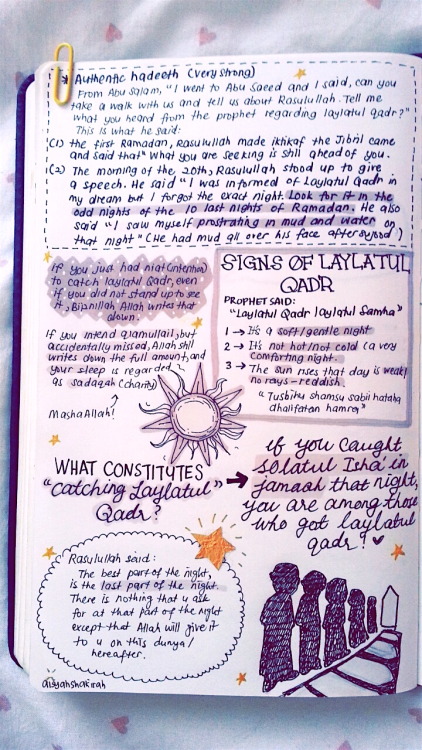 * Authentic hadeeth (very strong)
From Abu Salam, "I went to Abu Saeed and I said, can you
take a walk with us and tell us about Rasulullah. Tell me
what you heard from the prophet regarding laylatul qadr?"
This is what he said:
(1) the first Ramadan, Rasulullah made iktikaf the Jibril came
and said that "what you are seeking is still ahead of you.
(2) The morning of the 20th, Rasulullah stood up to give
a speech. He said "I was informed of Laylatul Qadr in
my dream but I forgot the exact night. Look for it in the
odd nights of the 10 last nights of Ramadan. He also
said "I saw myself prostrating in mud and water on
that night" (He had mud all over his face after sujood)
If you just had niat (intention)
to catch laylatul Qadr, even
if you did not stand up to see
it, Biiznillah Allah writes that
down.
If you intend qiamullail, but
accidentally missed, Allah still
writes down the full amount, and
your sleep is regarded
as sadaqah (charity)
MashaAllah!
SIGNS OF LAYLATUL
QADR
PROPHET SAID:
"Laylatul Qadr laylatul Samha"
1 → It's a soft/gentle night
2 → It's not hot/not cold (a very
comforting night.
3 → The sun rises that day is weak/
no rays - reddish.
"Tusbihu shamsu sabii hataha
dhalifatan hamra"
WHAT CONSTITUTES →
"catching Laylatul
Qadr?
if you caught
solatul Isha' in
jamaah that night,
you are among those
who got laylatul
qadr!
Rasulullah said:
The best part of the night,
is the last part of the night.
There is nothing that u ask
for at that part of the night
except that Allah will give it
to u on this dunya/
hereafter.
aisyahshakirah